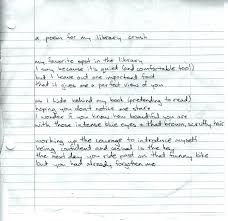 a poem for my library crush
my favorite spot in the library
I say because it's quiet (and comfortable too)
but I leave out one important fact
that it gives me a perfect view of you
as I hide behind my book (pretending to read)
hoping you don't notice me stare
I wonder if you know how beautiful you are
with those intense blue eyes + that brown, scruffy hair
working up the courage to introduce myself
being confident and casual is the key
the next day you ride past on that funny bike
but you had already forgotten me